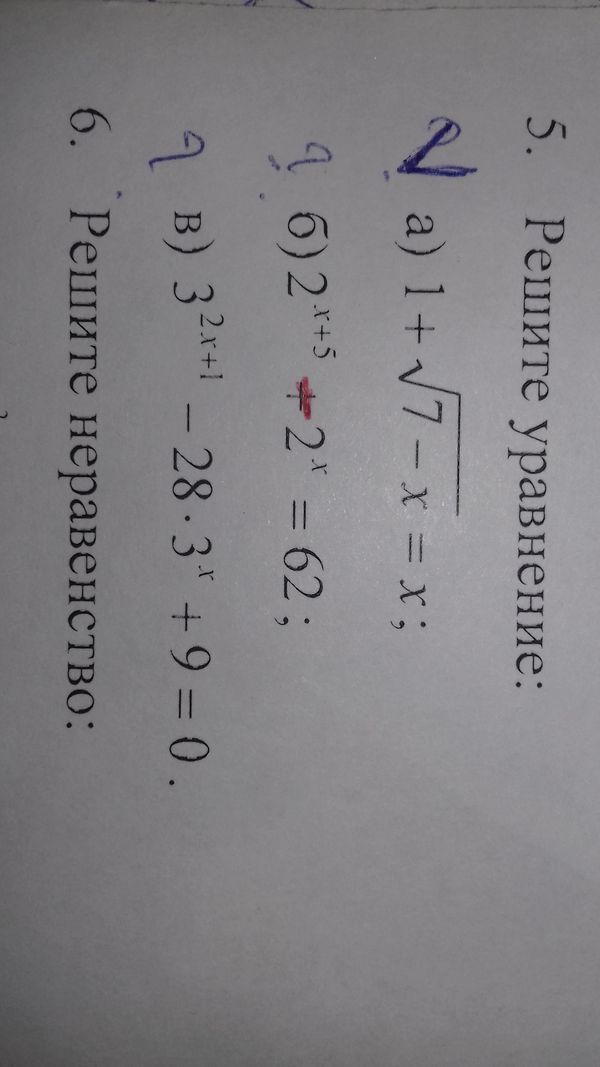 5. Решите уравнение:
а) 1 + √(7 − x) = x;
б) 2^(x+5) − 2^x = 62;
в) 3^(2x+1) − 28 · 3^x + 9 = 0.
6. Решите неравенство: